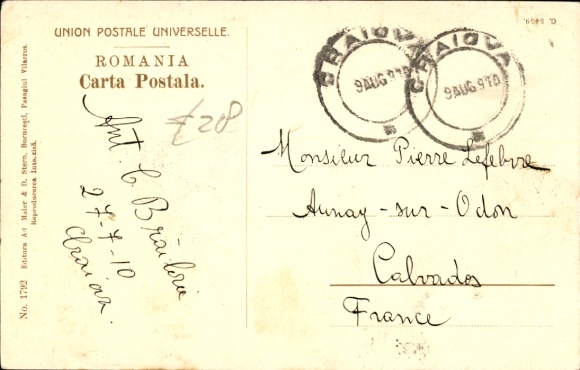 UNION POSTALE UNIVERSELLE.
ROMANIA
Carta Postala.
C. 5459.
CRAIOVA
9 AUG 910
CRAIOVA
9 AUG 910
£28
Ant. C. Brăiloiu
27-7-10
Craiova.
Monsieur Pierre Lefebvre
Aunay-sur-Odon
Calvados
France
No. 1792 Editura Ad. Maier & D. Stern, Bucureşti, Pasagiul Vilacros.
Reproducerea Interzisă.